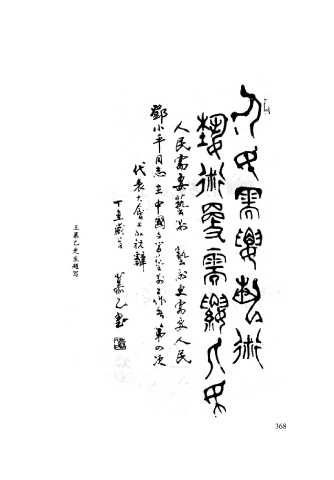 人民需要藝術
藝術更需要人民
人民需要藝術 藝術更需要人民
鄧小平同志在中國文學藝術工作者第四次
代表大會上的祝辭
丁丑歲 慕乙書
王慕乙先生题写
368